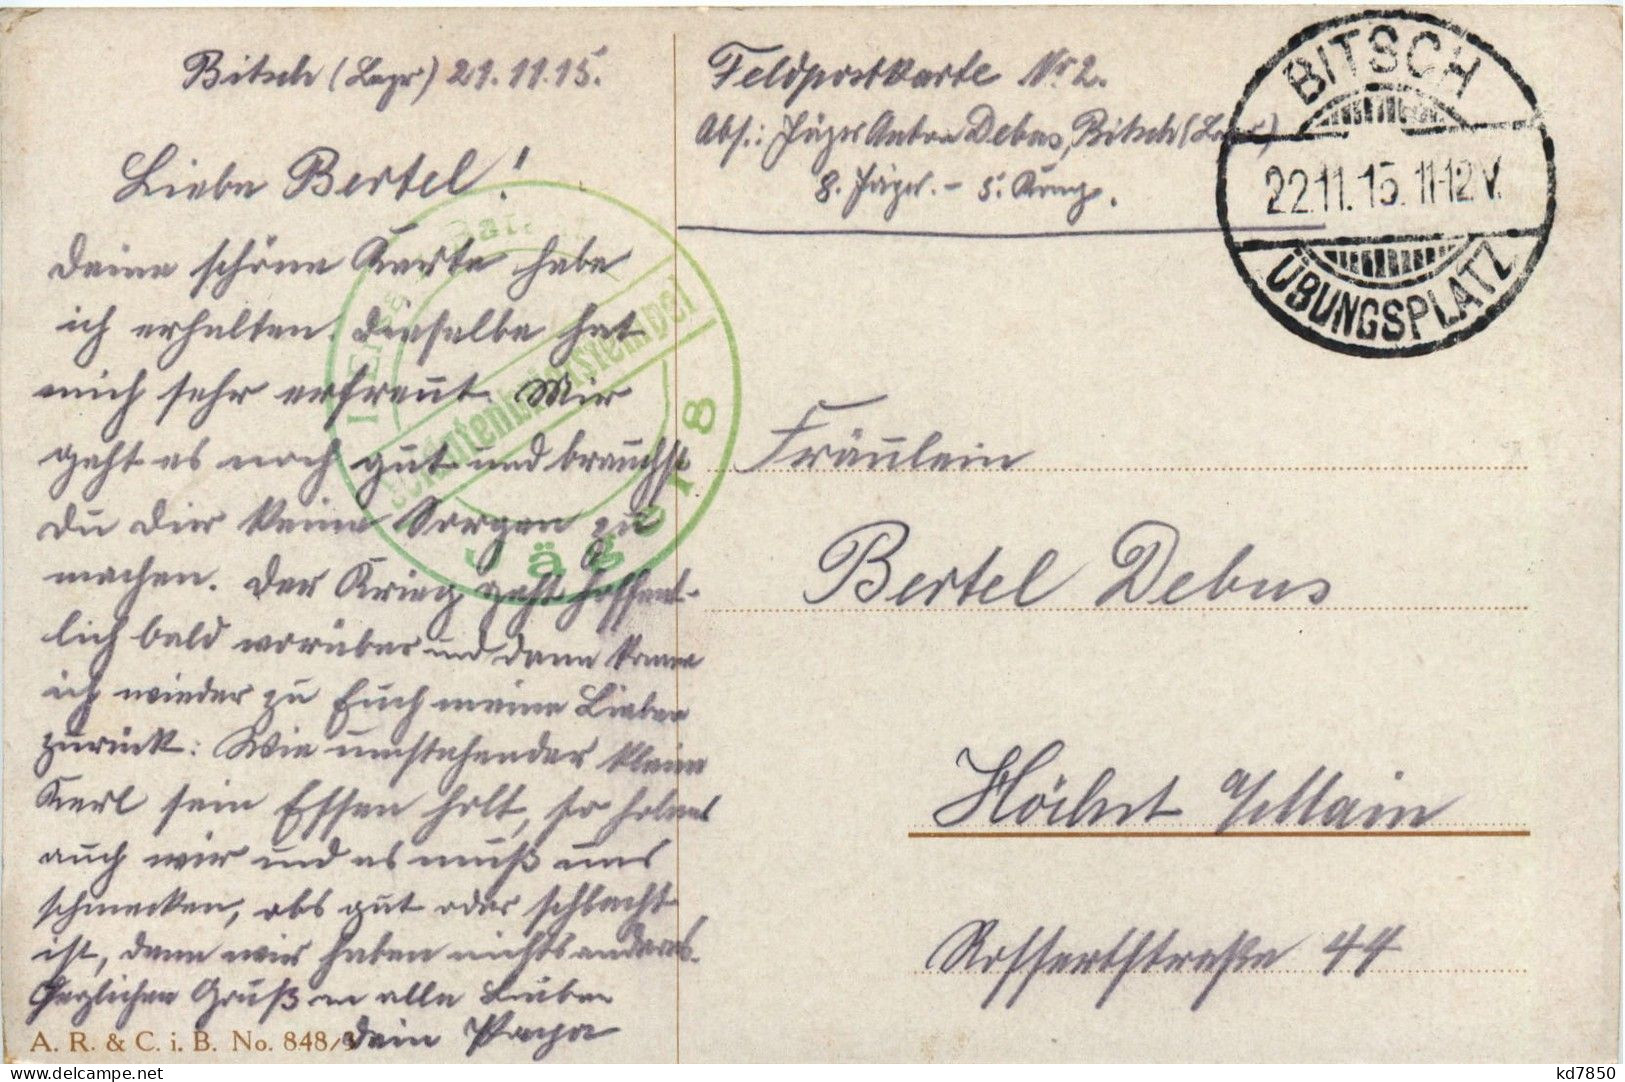 Bitsch (Lagr) 21.11.15.
Liebe Bertel!
Deine schöne Karte habe
ich erhalten. Dieselbe hat
mich sehr erfreut. Mir
geht es noch gut und brauchst
Du Dir keine Sorgen zu
machen. Der Krieg geht hoffent-
lich bald vorüber und dann komme
ich wieder zu Euch meine Lieben
zurück. Wie umstehender kleine
Kerl sein Essen holt, so holens
auch wir und es muß uns
schmecken, obs gut oder schlecht
ist, denn wir haben nichts anderes.
Herzlichen Gruß an alle Lieben
Dein Papa
A. R. & C. i. B. No. 848/
Feldpostkarte No 2.
Abs.: Jäger Anton Debus, Bitsch
8. Jäger. - 5. Komp.
BITSCH
22.11.15. 11-12 V.
ÜBUNGSPLATZ
Jäger 8
Fräulein
Bertel Debus
Höchst a/Main
Rossertstraße 44
kd7850